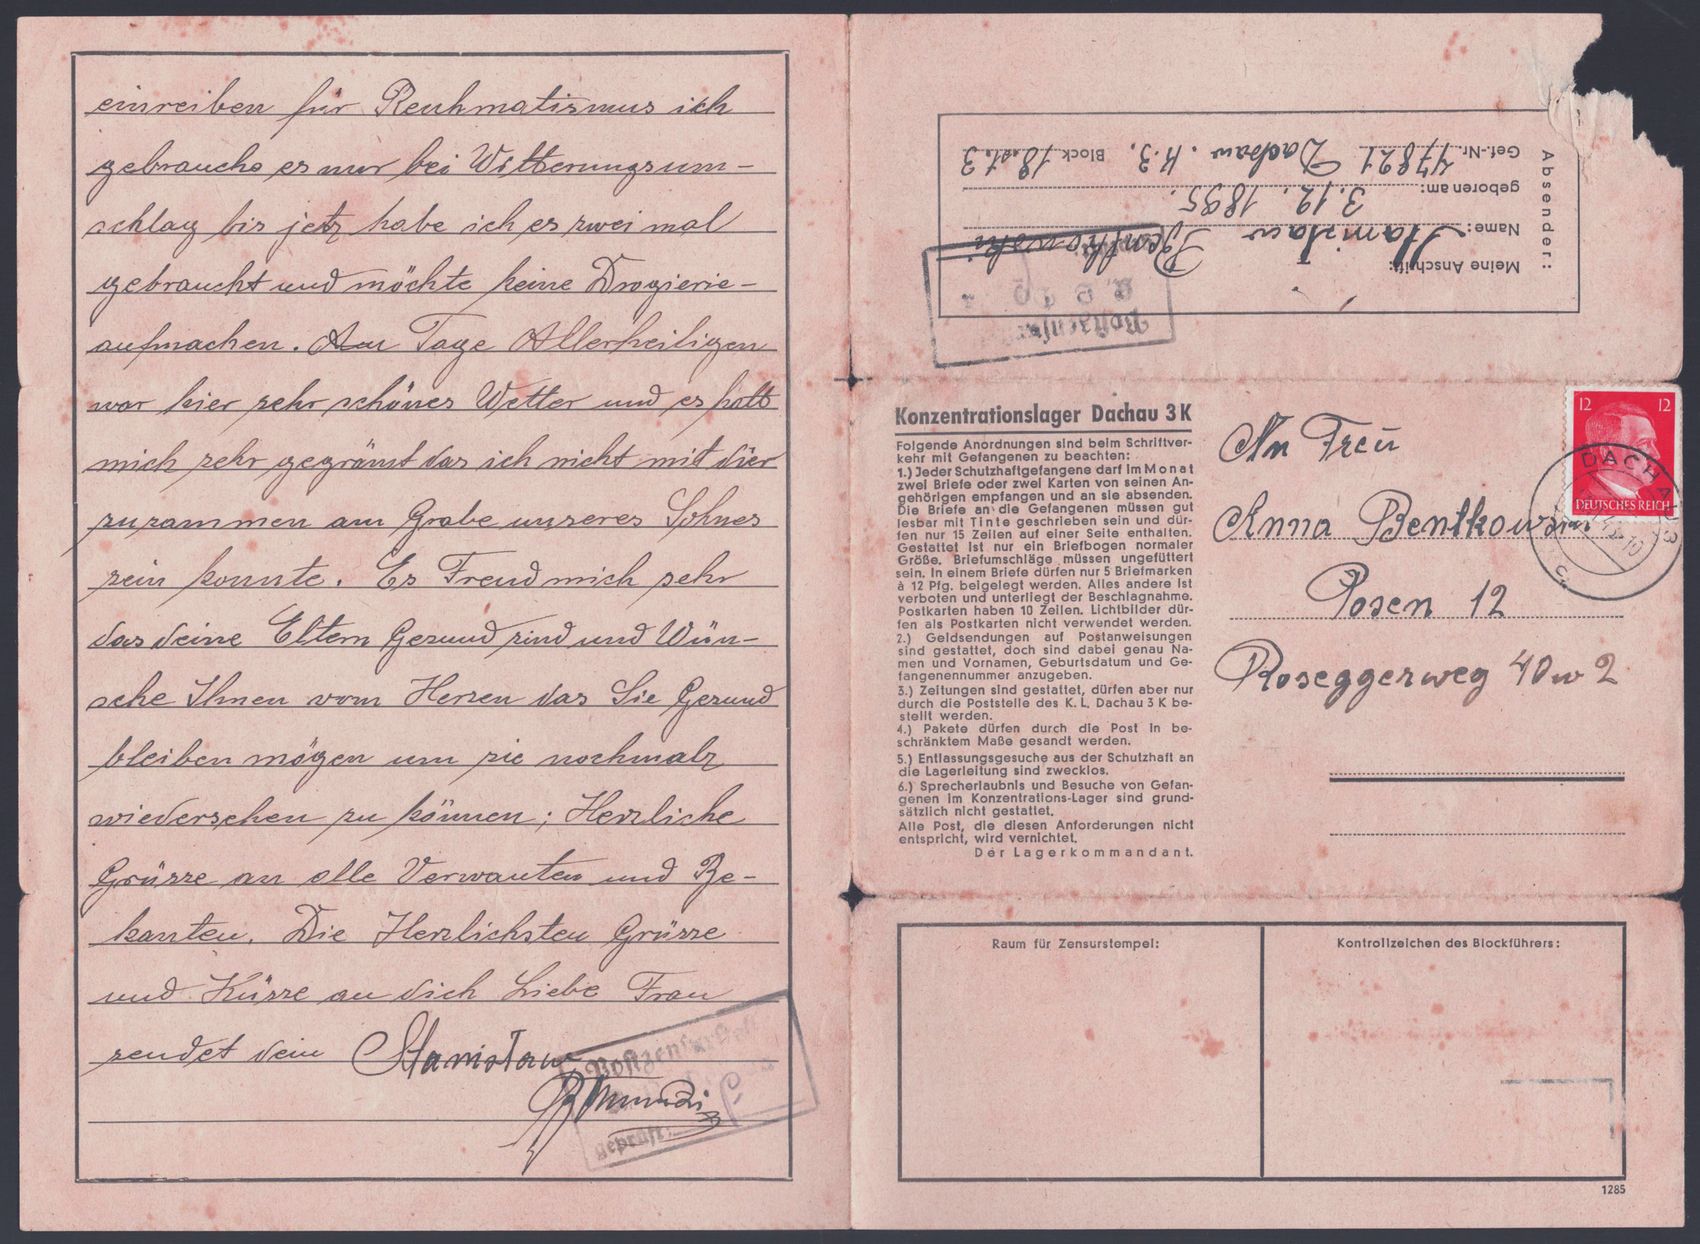 einreiben für Reuhmatismus ich
gebrauche es nur bei Witterungsum-
schlag bis jetz habe ich es zwei mal
gebraucht und möchte keine Drogierie-
aufmachen. Am Tage Allerheiligen
war hier sehr schönes Wetter und es hatt
mich sehr gegrämt das ich nicht mit dier
zusammen am Grabe unseres Sohnes
sein konnte. Es Freud mich sehr
das deine Eltern Gesund sind und Wün-
sche Ihnen vom Herzen das Sie Gesund
bleiben mögen um sie nochmalz
wiedersehen zu können; Herzliche
Grüsse an alle Verwanten und Be-
kanten. Die Herzlichsten Grüsse
und Küsse an dich Liebe Frau
sendet dein Stanisław
Postzensurstelle
geprüft:
Absender:
Meine Anschrift:
Name: Stanisław Bentkowski
geboren am: 3.12.1895.
Gef.-Nr. 47821 Dachau K.3. Block 18 st. 3
Postzensur
Konzentrationslager Dachau 3 K
Folgende Anordnungen sind beim Schriftver-
kehr mit Gefangenen zu beachten:
1.) Jeder Schutzhaftgefangene darf im Monat
zwei Briefe oder zwei Karten von seinen An-
gehörigen empfangen und an sie absenden.
Die Briefe an die Gefangenen müssen gut
lesbar mit Tinte geschrieben sein und dür-
fen nur 15 Zeilen auf einer Seite enthalten.
Gestattet ist nur ein Briefbogen normaler
Größe. Briefumschläge müssen ungefüttert
sein. In einem Briefe dürfen nur 5 Briefmarken
à 12 Pfg. beigelegt werden. Alles andere ist
verboten und unterliegt der Beschlagnahme.
Postkarten haben 10 Zeilen. Lichtbilder dür-
fen als Postkarten nicht verwendet werden.
2.) Geldsendungen auf Postanweisungen
sind gestattet, doch sind dabei genau Na-
men und Vornamen, Geburtsdatum und Ge-
fangenennummer anzugeben.
3.) Zeitungen sind gestattet, dürfen aber nur
durch die Poststelle des K. L. Dachau 3 K be-
stellt werden.
4.) Pakete dürfen durch die Post in be-
schränktem Maße gesandt werden.
5.) Entlassungsgesuche aus der Schutzhaft an
die Lagerleitung sind zwecklos.
6.) Sprecherlaubnis und Besuche von Gefan-
genen im Konzentrations-Lager sind grund-
sätzlich nicht gestattet.
Alle Post, die diesen Anforderungen nicht
entspricht, wird vernichtet.
Der Lagerkommandant.
12 12
DEUTSCHES REICH
DACHAU 3
An Freu
Anna Bentkowski
Posen 12
Roseggerweg 40 w 2
Raum für Zensurstempel:
Kontrollzeichen des Blockführers:
1285